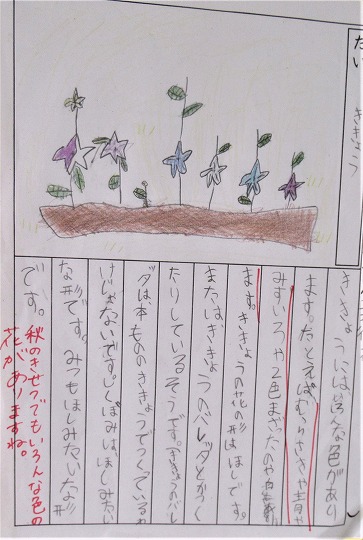 だい
ききょう
ききょうには、いろんな色があり
ます。たとえば、むらさきや青や
みずいろや2色まざったのや
ます。ききょうの花の形はほしです。
またはききょうのバレッタとかつく
たりしているそうです。バレ
タは本もののききょうでつくっている
けじゃないです。しくぼみは、ほしみたい
な形です。みつもほしみたいな形
です。
秋のきせつでもいろんな色の
花がありますね。